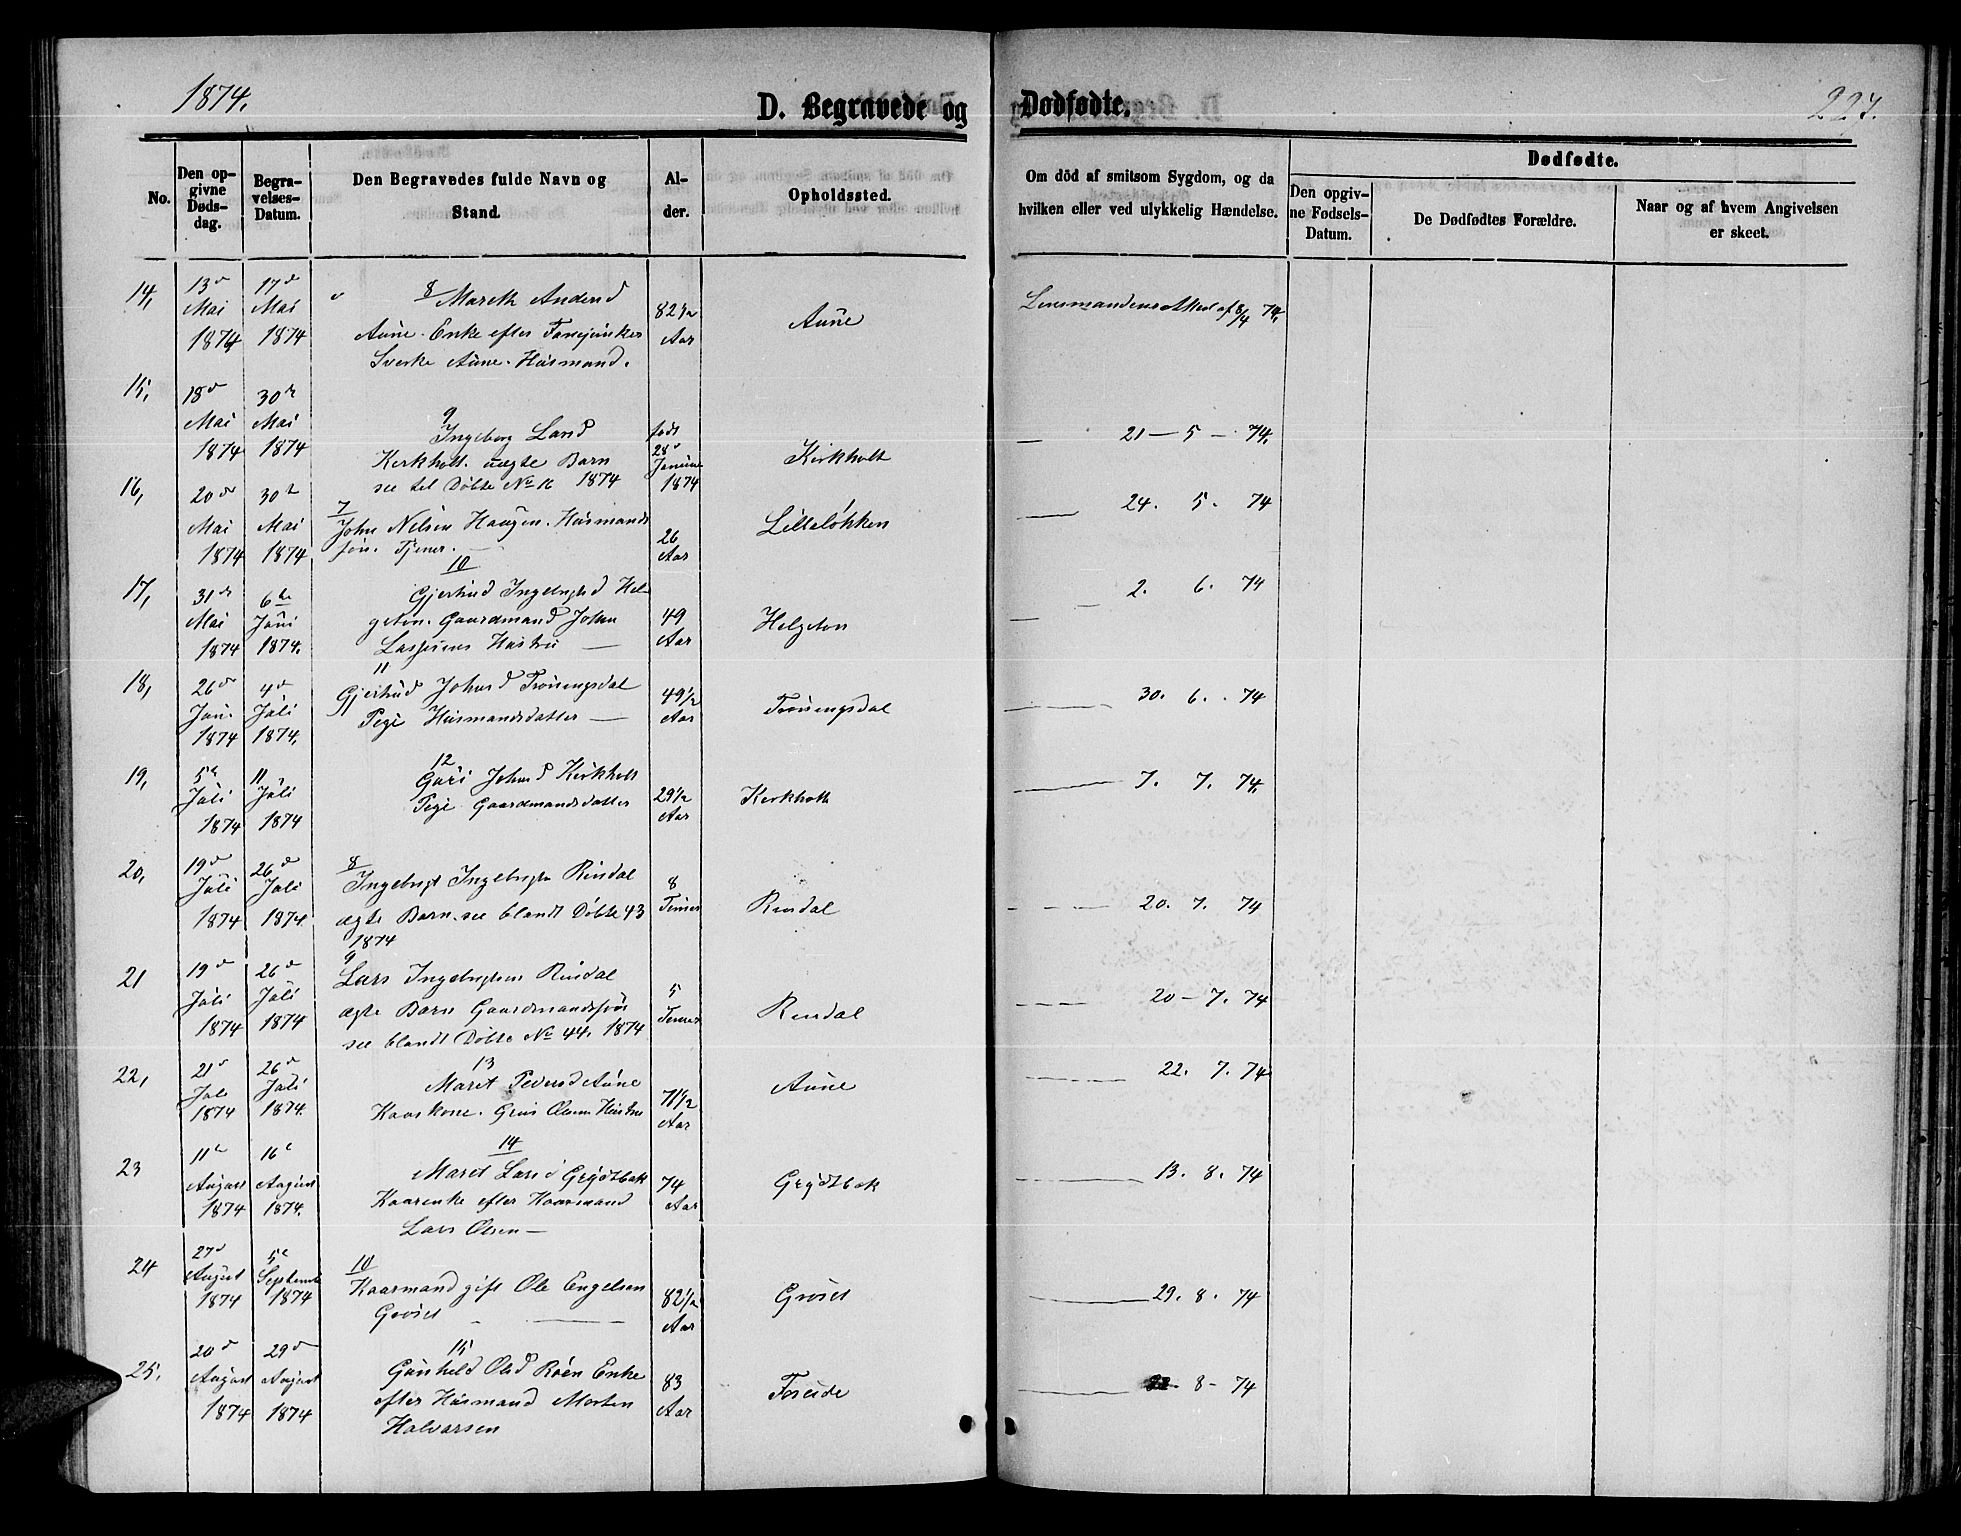 1874.
D. Begravede og Dødfødte.
227.
No.
Den opgivne Dødsdag.
Begravelses-Datum.
Den Begravedes fulde Navn og Stand.
Alder.
Opholdssted.
Om död af smitsom Sygdom, og da hvilken eller ved ulykkelig Hændelse.
Dødfødte.
Den opgivne Fødsels-Datum.
De Dødfødtes Forældre.
Naar og af hvem Angivelsen er skeet.
14, 13d Mai 1874 17d Mai 1874
8 Marith Andersd
Aune. Enke efter Fanejunker
Sverke Aune. Husmand.
82 1/2 Aar
Aune
Lensmandens 8/4 74.
15, 18d Mai 1874 30te Mai 1874
9
Ingeborg Larsd
Kerkholt. uægte Barn
see til Døbte No 16 1874
født 28d 1874
Kirkholt
— 21 — 5 — 74.
16, 20de Mai 1874 30te Mai 1874
7
John Nilsen Haugen. Husmands
søn. Tjener. —
26 Aar
Lilleløkken
— 24. 5. 74
17, 31te Mai 1874 6te Juni 1874.
10
Gjertrud Ingebrigtsd Hel-
geton. Gaardmand John
Larssens Hustru —
49 Aar
Helgeton
— 2. 6. 74
18, 26de Juni 1874 4de Juli 1874.
11
Gjertrud Johnsd Trønningsdal
Pige Husmandsdatter —
49 1/2 Aar
— 30. 6. 74
19, 5te Juli 1874 11 Juli 1874
12
Guri Johnsd Kirkholt
Pige Gaardmandsdatter
29 1/2 Aar
Kerkholt
— 7. 7. 74.
20, 19d Juli 1874 26d Juli 1874
8
Ingebrigt Ingebrigts Rindal
ægte Barn. see blandt Døbte 43
1874
8 Timer
Rindal
— 20. 7. 74
21 19d Juli 1874 26d Juli 1874
9
Lars Ingebrigtsen Rindal
ægte Barn Gaardmandssøn
see blandt Døbte No 44. 1874
5 Timer
Rindal
— 20 — 7. 74
22, 21d Juli 1874 26d Juli 1874.
13
Maret Pedersd Aune
Kaarkone. Olsens Hustru
71 1/2 Aar
Aune
— 22. 7. 74
23 11te August 1874 16te August 1874.
14
Maret Larsd Grydtbak
Kaarenke efter Kaarmand
Lars Olsen —
74 Aar
Grydtbak
— 13. 8. 74
24 27d August 1874 5te September 1874
10
Kaarmand gift Ole Engelsen
Grøset —
82 1/2 Aar
Grøset
— 29. 8. 74
25. 20d August 1874 29d August 1874
15
Gunhild Olsd Røen Enke
efter Husmand Morten
Halvarsen
83 Aar
Foseide
— 8 — 74